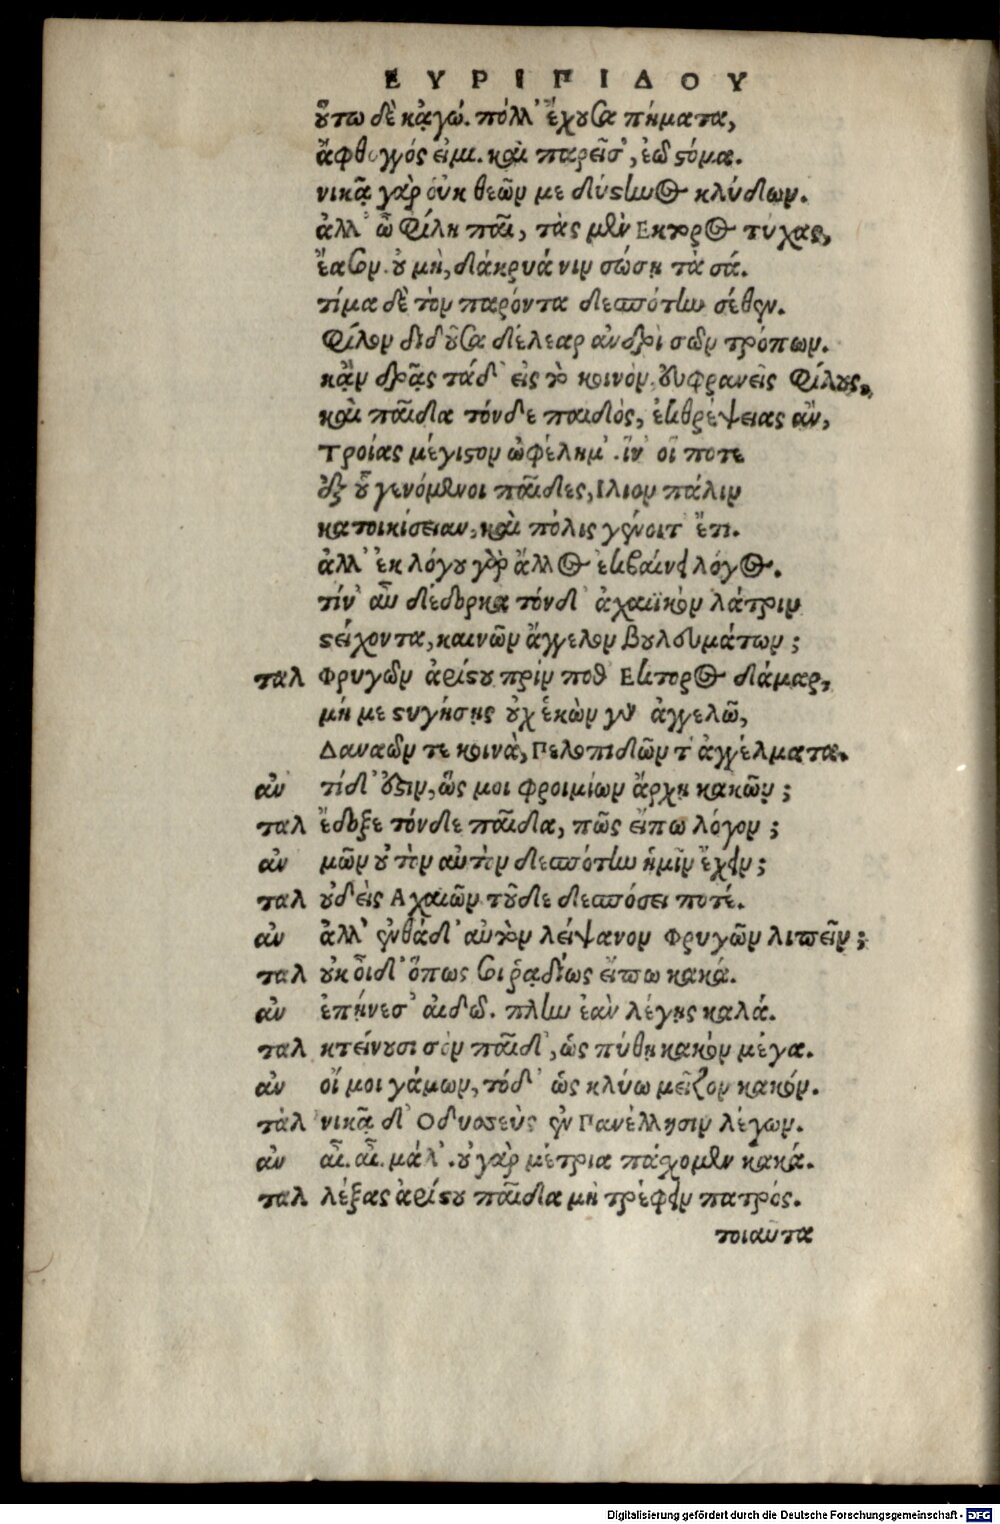 ΕΥΡΙΠΙΔΟΥ
οὕτω δὲ κᾀγώ. πόλλ' ἔχουσα πήματα,
ἄφθογγός εἰμι. καὶ παρεῖσ', ἐῶ στόμα.
νικᾷ γὰρ οὐκ θεῶν με δύστηνος κλύδων.
ἀλλ' ὦ φίλη παῖ, τὰς μὲν Ἕκτορος τύχας,
ἔασον. οὐ μὴ, δάκρυά νιν σώσῃ τὰ σά.
τίμα δὲ τὸν παρόντα δεσπότην σέθεν.
φίλον διδοῦσα δέλεαρ ἀνδρὶ σῶν τρόπων.
κἂν δρᾷς τάδ' εἰς τὸ κοινὸν, εὐφρανεῖς φίλους,
καὶ παῖδα τόνδε παιδὸς, ἐκθρέψειας ἂν,
Τροίας μέγιστον ὠφέλημ'. ἵν' οἵ ποτε
ἐξ οὗ γενόμενοι παῖδες, Ιλιον πάλιν
κατοικίσειαν, καὶ πόλις γένοιτ' ἔτι.
ἀλλ' ἐκ λόγου γὰρ ἄλλος ἐκβαίνει λόγος.
τίν' αὖ δέδορκα τόνδ' ἀχαιϊκὸν λάτριν
στείχοντα, καινῶν ἄγγελον βουλευμάτων;
ταλ Φρυγῶν ἀρίστου πρίν ποθ' Εκτορος δάμαρ,
μή με στυγήσῃς οὐχ ἑκὼν γὰρ ἀγγελῶ,
Δαναῶν τε κοινὰ, Πελοπιδῶν τ' ἀγγέλματα.
αν τί δ' ἔστιν, ὥς μοι φροιμίων ἄρχῃ κακῶν;
ταλ ἔδοξε τόνδε παῖδα, πῶς εἴπω λόγον;
αν μῶν οὐ τὴν αὐτὴν δεσπότην ἡμῖν ἔχειν;
ταλ οὐδεὶς Αχαιῶν τοῦδε δεσπόσει ποτέ.
αν ἀλλ' ἐνθάδ' αὐτὸν λείψανον Φρυγῶν λιπεῖν;
ταλ οὐκ οἶδ' ὅπως σοι ῥᾳδίως εἴπω κακά.
αν ἐπῄνεσ' αἰδῶ. πλὴν ἐὰν λέγῃς καλά.
ταλ κτείνουσι σὸν παῖδ', ὡς πύθῃ κακὸν μέγα.
αν οἴ μοι γάμων, τόδ' ὡς κλύω μεῖζον κακόν.
ταλ νικᾷ δ' Οδυσσεὺς ἐν Πανέλλησιν λέγων.
αν αἶ. αἶ. μάλ'. οὐ γὰρ μέτρια πάσχομεν κακά.
ταλ λέξας ἀρίστου παῖδα μὴ τρέφειν πατρός.
τοιαῦτα
Digitalisierung gefördert durch die Deutsche Forschungsgemeinschaft - DFG